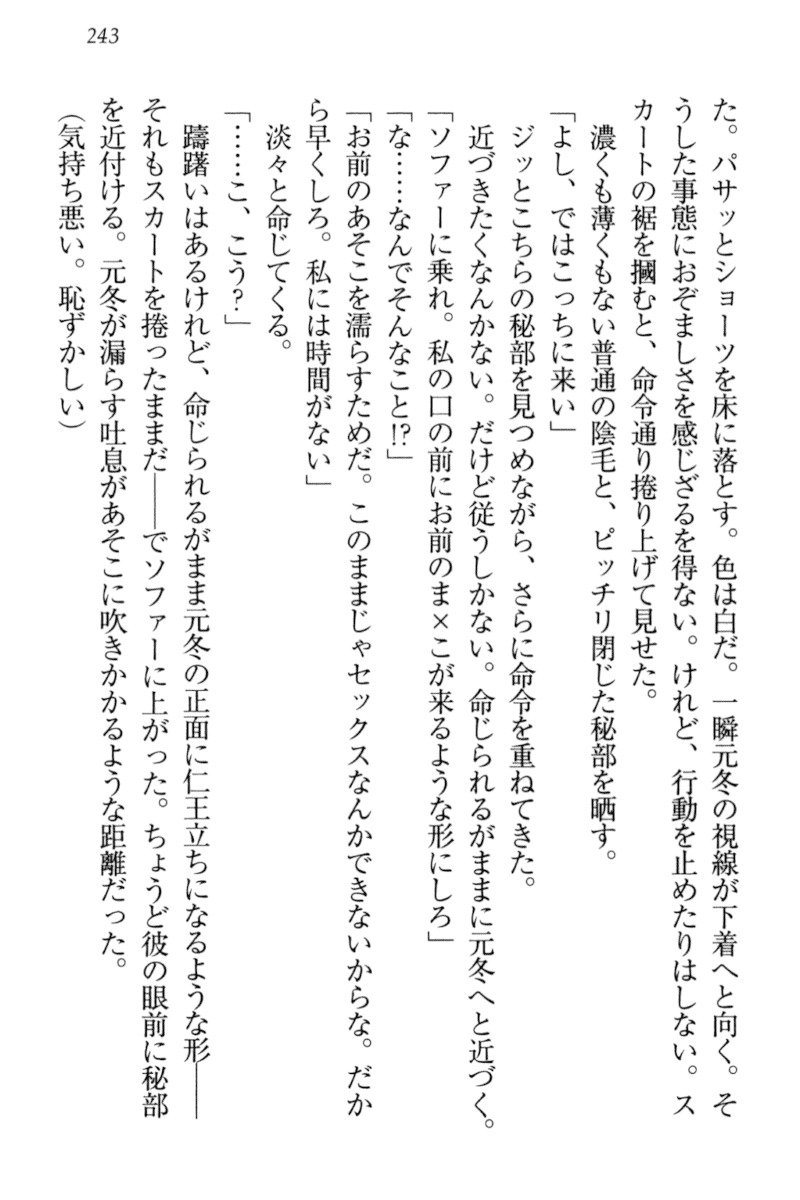 243
た。パサッとショーツを床に落とす。色は白だ。一瞬元冬の視線が下着へと向く。そ
うした事態におぞましさを感じざるを得ない。けれど、行動を止めたりはしない。ス
カートの裾を摑むと、命令通り捲り上げて見せた。
濃くも薄くもない普通の陰毛と、ピッチリ閉じた秘部を晒す。
「よし、ではこっちに来い」
ジッとこちらの秘部を見つめながら、さらに命令を重ねてきた。
近づきたくなんかない。だけど従うしかない。命じられるがままに元冬へと近づく。
「ソファーに乗れ。私の口の前にお前のま×こが来るような形にしろ」
「な……なんでそんなこと!?」
「お前のあそこを濡らすためだ。このままじゃセックスなんかできないからな。だか
ら早くしろ。私には時間がない」
淡々と命じてくる。
「……こ、こう?」
躊躇いはあるけれど、命じられるがまま元冬の正面に仁王立ちになるような形――
それもスカートを捲ったままだ――でソファーに上がった。ちょうど彼の眼前に秘部
を近付ける。元冬が漏らす吐息があそこに吹きかかるような距離だった。
(気持ち悪い。恥ずかしい)